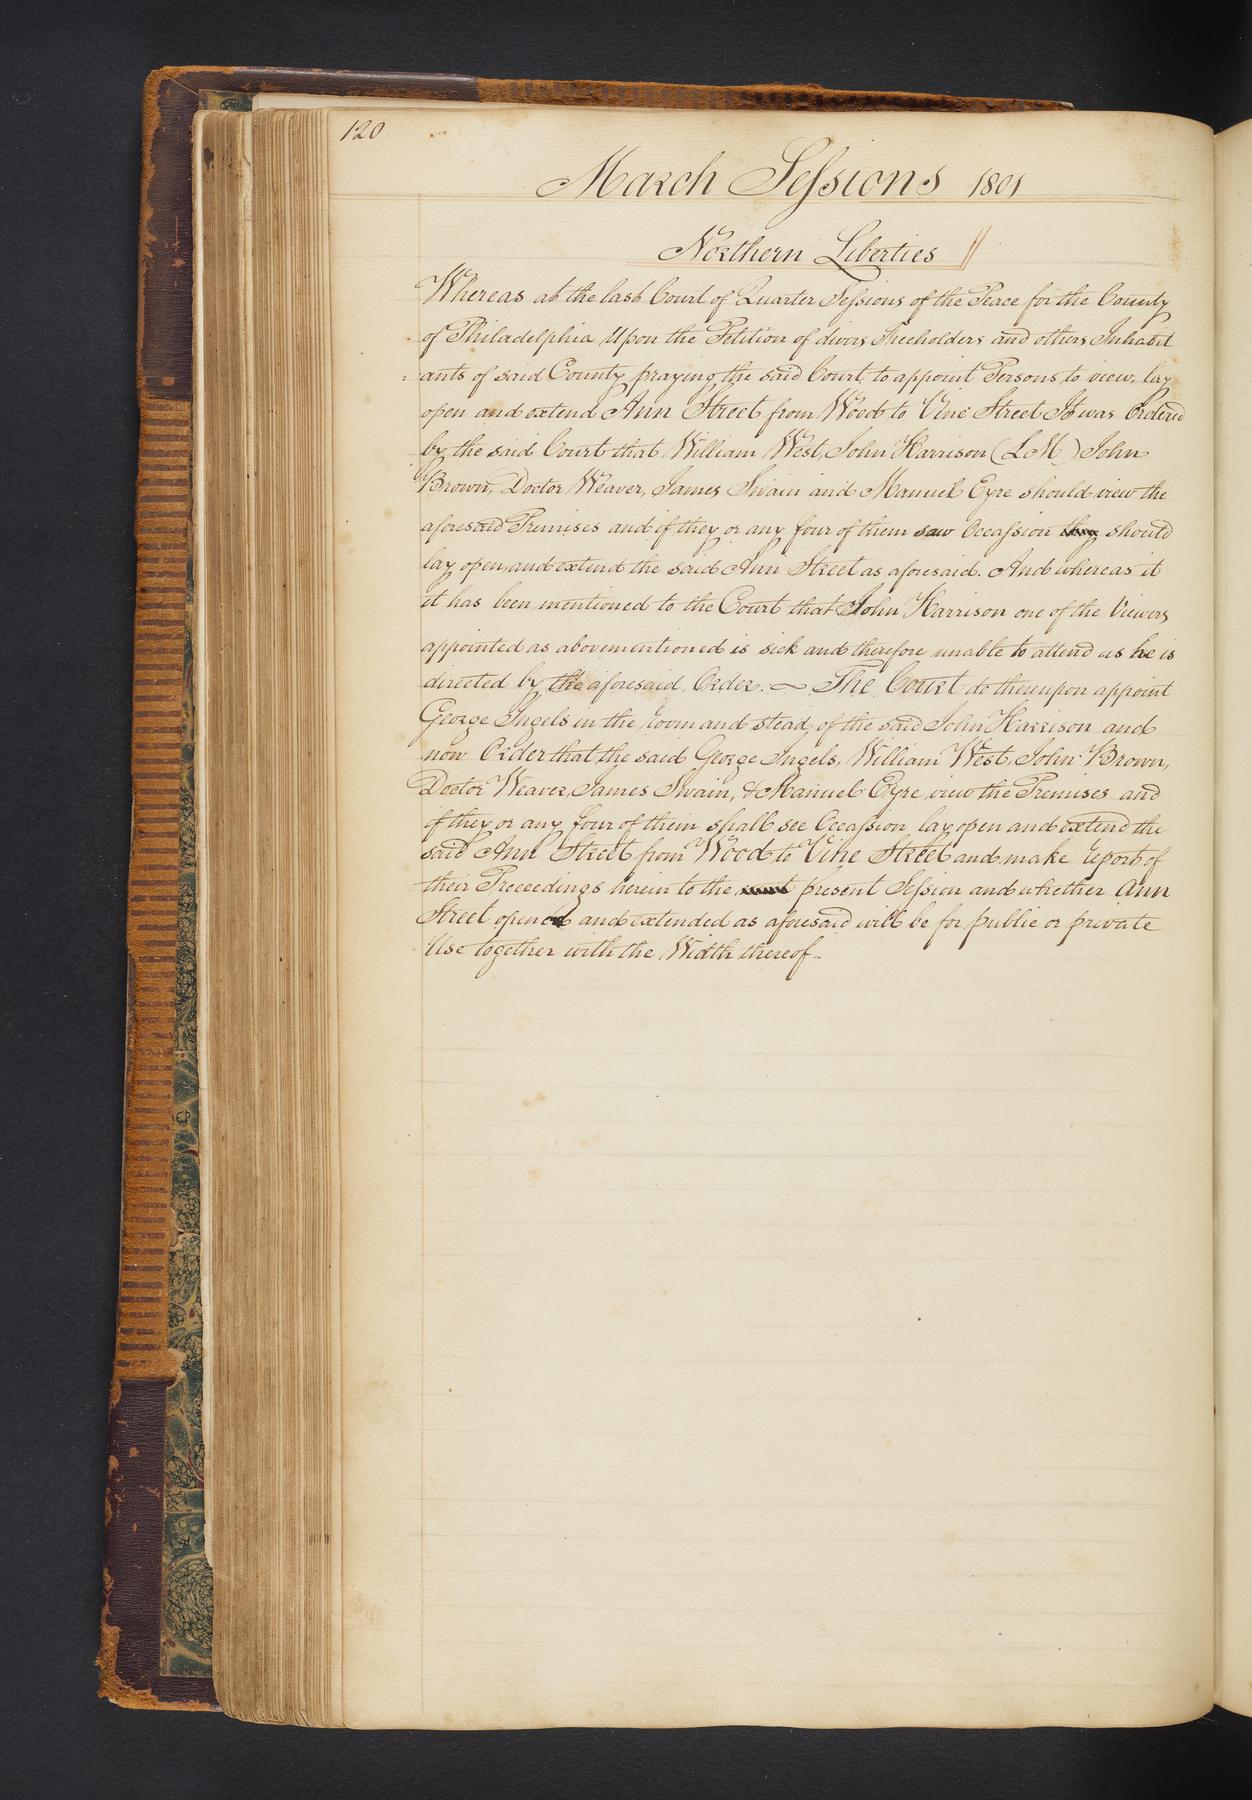 120
March Sessions 1801
Northern Liberties
Whereas at the last Court of Quarter Sessions of the Peace for the County
of Philadelphia Upon the Petition of divers Freeholders and others Inhabit
ants of said County praying the said Court to appoint Persons to view, lay
open and extend Ann Street from Wood to Vine Street It was Ordered
by the said Court that William West, John Harrison (L M) John
Brown, Doctor Weaver, James Swain and Manuel Eyre should view the
aforesaid Premises and if they or any four of them saw Occassion they should
lay open and extend the said Ann Street as aforesaid. And whereas it
it has been mentioned to the Court that John Harrison one of the Viewers
appointed as abovementioned is sick and therefore unable to attend as he is
directed by the aforesaid Order. — The Court do thereupon appoint
George Ingels in the room and stead of the said John Harrison and
now Order that the said George Ingels, William West, John Brown,
Doctor Weaver, James Swain, & Manuel Eyre view the Premises and
if they or any four of them shall see Occassion lay open and extend the
said Ann Street from Wood to Vine Street and make report of
their Proceedings herein to the present Session and whether Ann
Street opened and extended as aforesaid will be for public or private
Use together with the Width thereof -